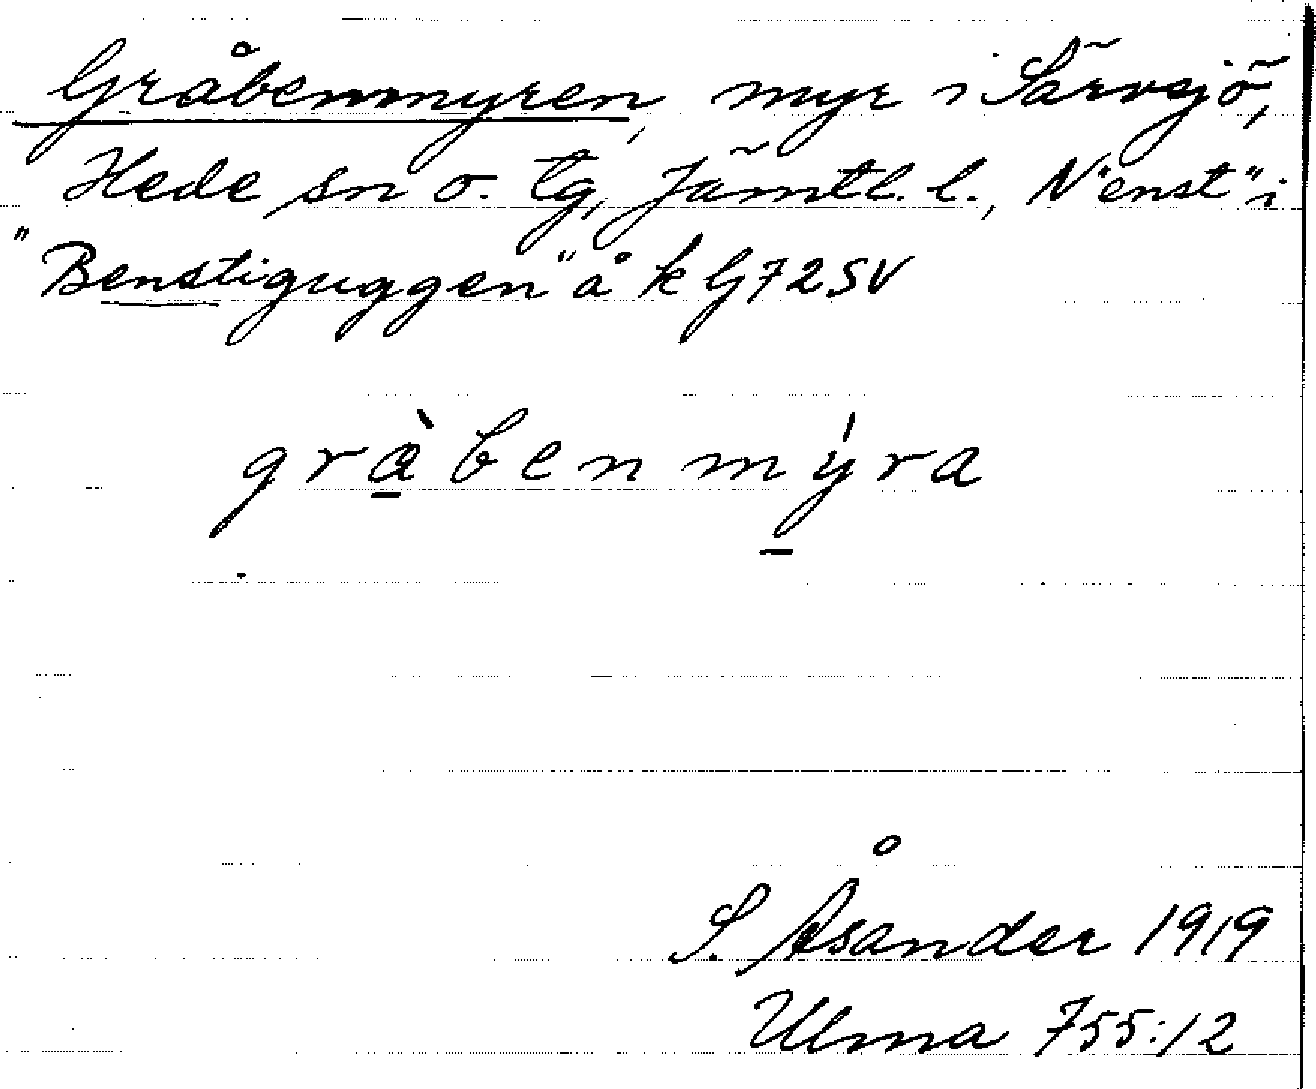 Gråbenmyren, myr i Särvsjö,
Hede sn o. tg, Jämtl. l., N "enst" i
"Benstiguggen" å k G72SV
gràben mýra
S. Åsander 1919
Ulma 755:12